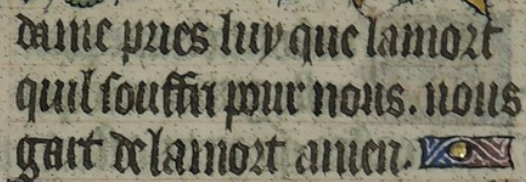 dame pries luy que lamort
quil souffri pour nous. nous
gart de lamort amen.